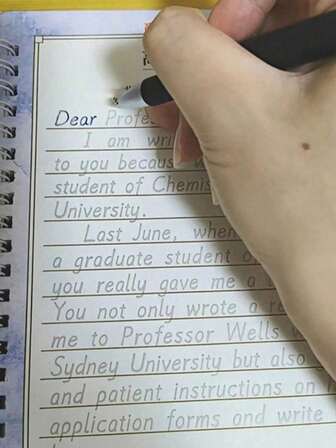 Dear Profe
I am wri
to you becaus
student of Chemis
University.
Last June, when
a graduate student o
you really gave me a
You not only wrote a re
me to Professor Wells
Sydney University but also
and patient instructions on
application forms and write